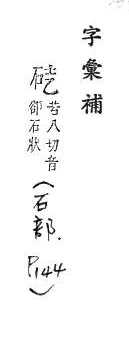 字彙補
苦八切音
石狀
(石部. P144)